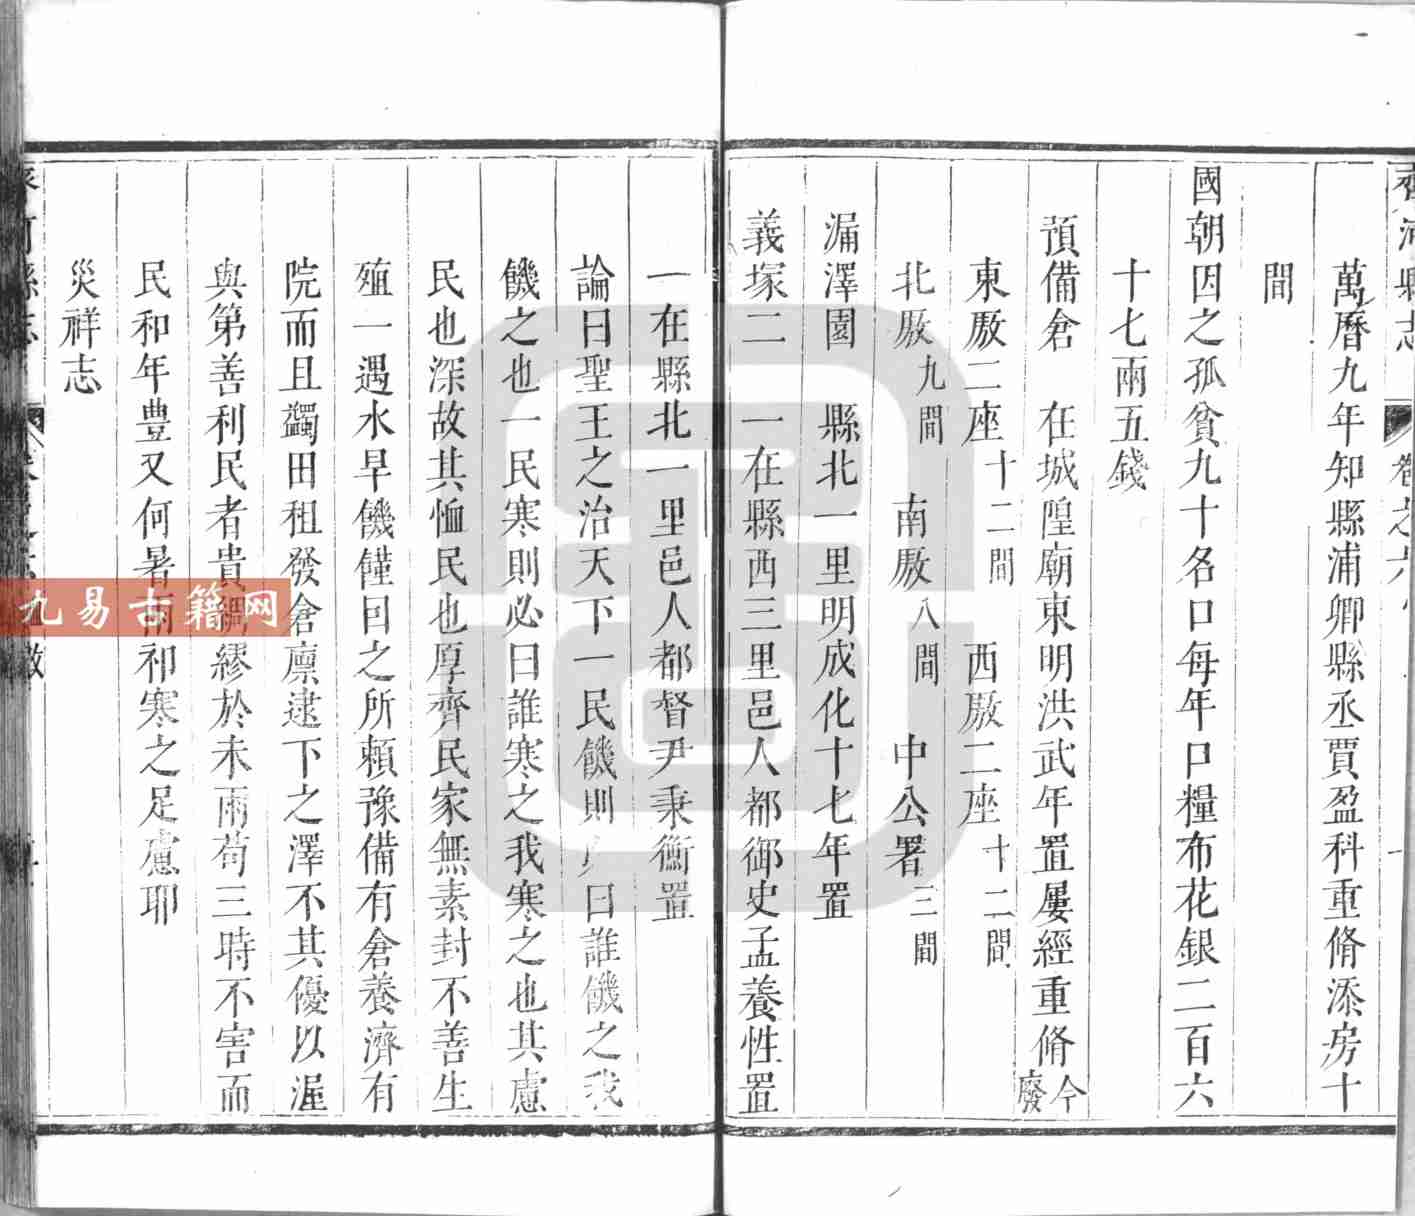 齊河縣志 卷之六
萬曆九年知縣浦卿縣丞賈盈科重脩添房十
間
國朝因之孤貧九十名口每年口糧布花銀二百六
十七兩五錢
預備倉 在城隍廟東明洪武年置屢經重脩今廢
東厫二座十二間 西厫二座十二間
北厫九間 南厫八間 中公署三間
漏澤園 縣北一里明成化十七年置
義塚二 一在縣西三里邑人都御史孟養性置
一在縣北一里邑人都督尹秉衡置
論曰聖王之治天下一民饑則曰誰饑之我
饑之也一民寒則必曰誰寒之我寒之也其慮
民也深故其恤民也厚齊民家無素封不善生
殖一遇水旱饑饉囙之所賴豫備有倉養濟有
院而且蠲田租發倉廩逮下之澤不其優以渥
與第善利民者貴綢繆於未雨苟三時不害而
民和年豊又何暑雨祁寒之足慮耶
災祥志
九易古籍网